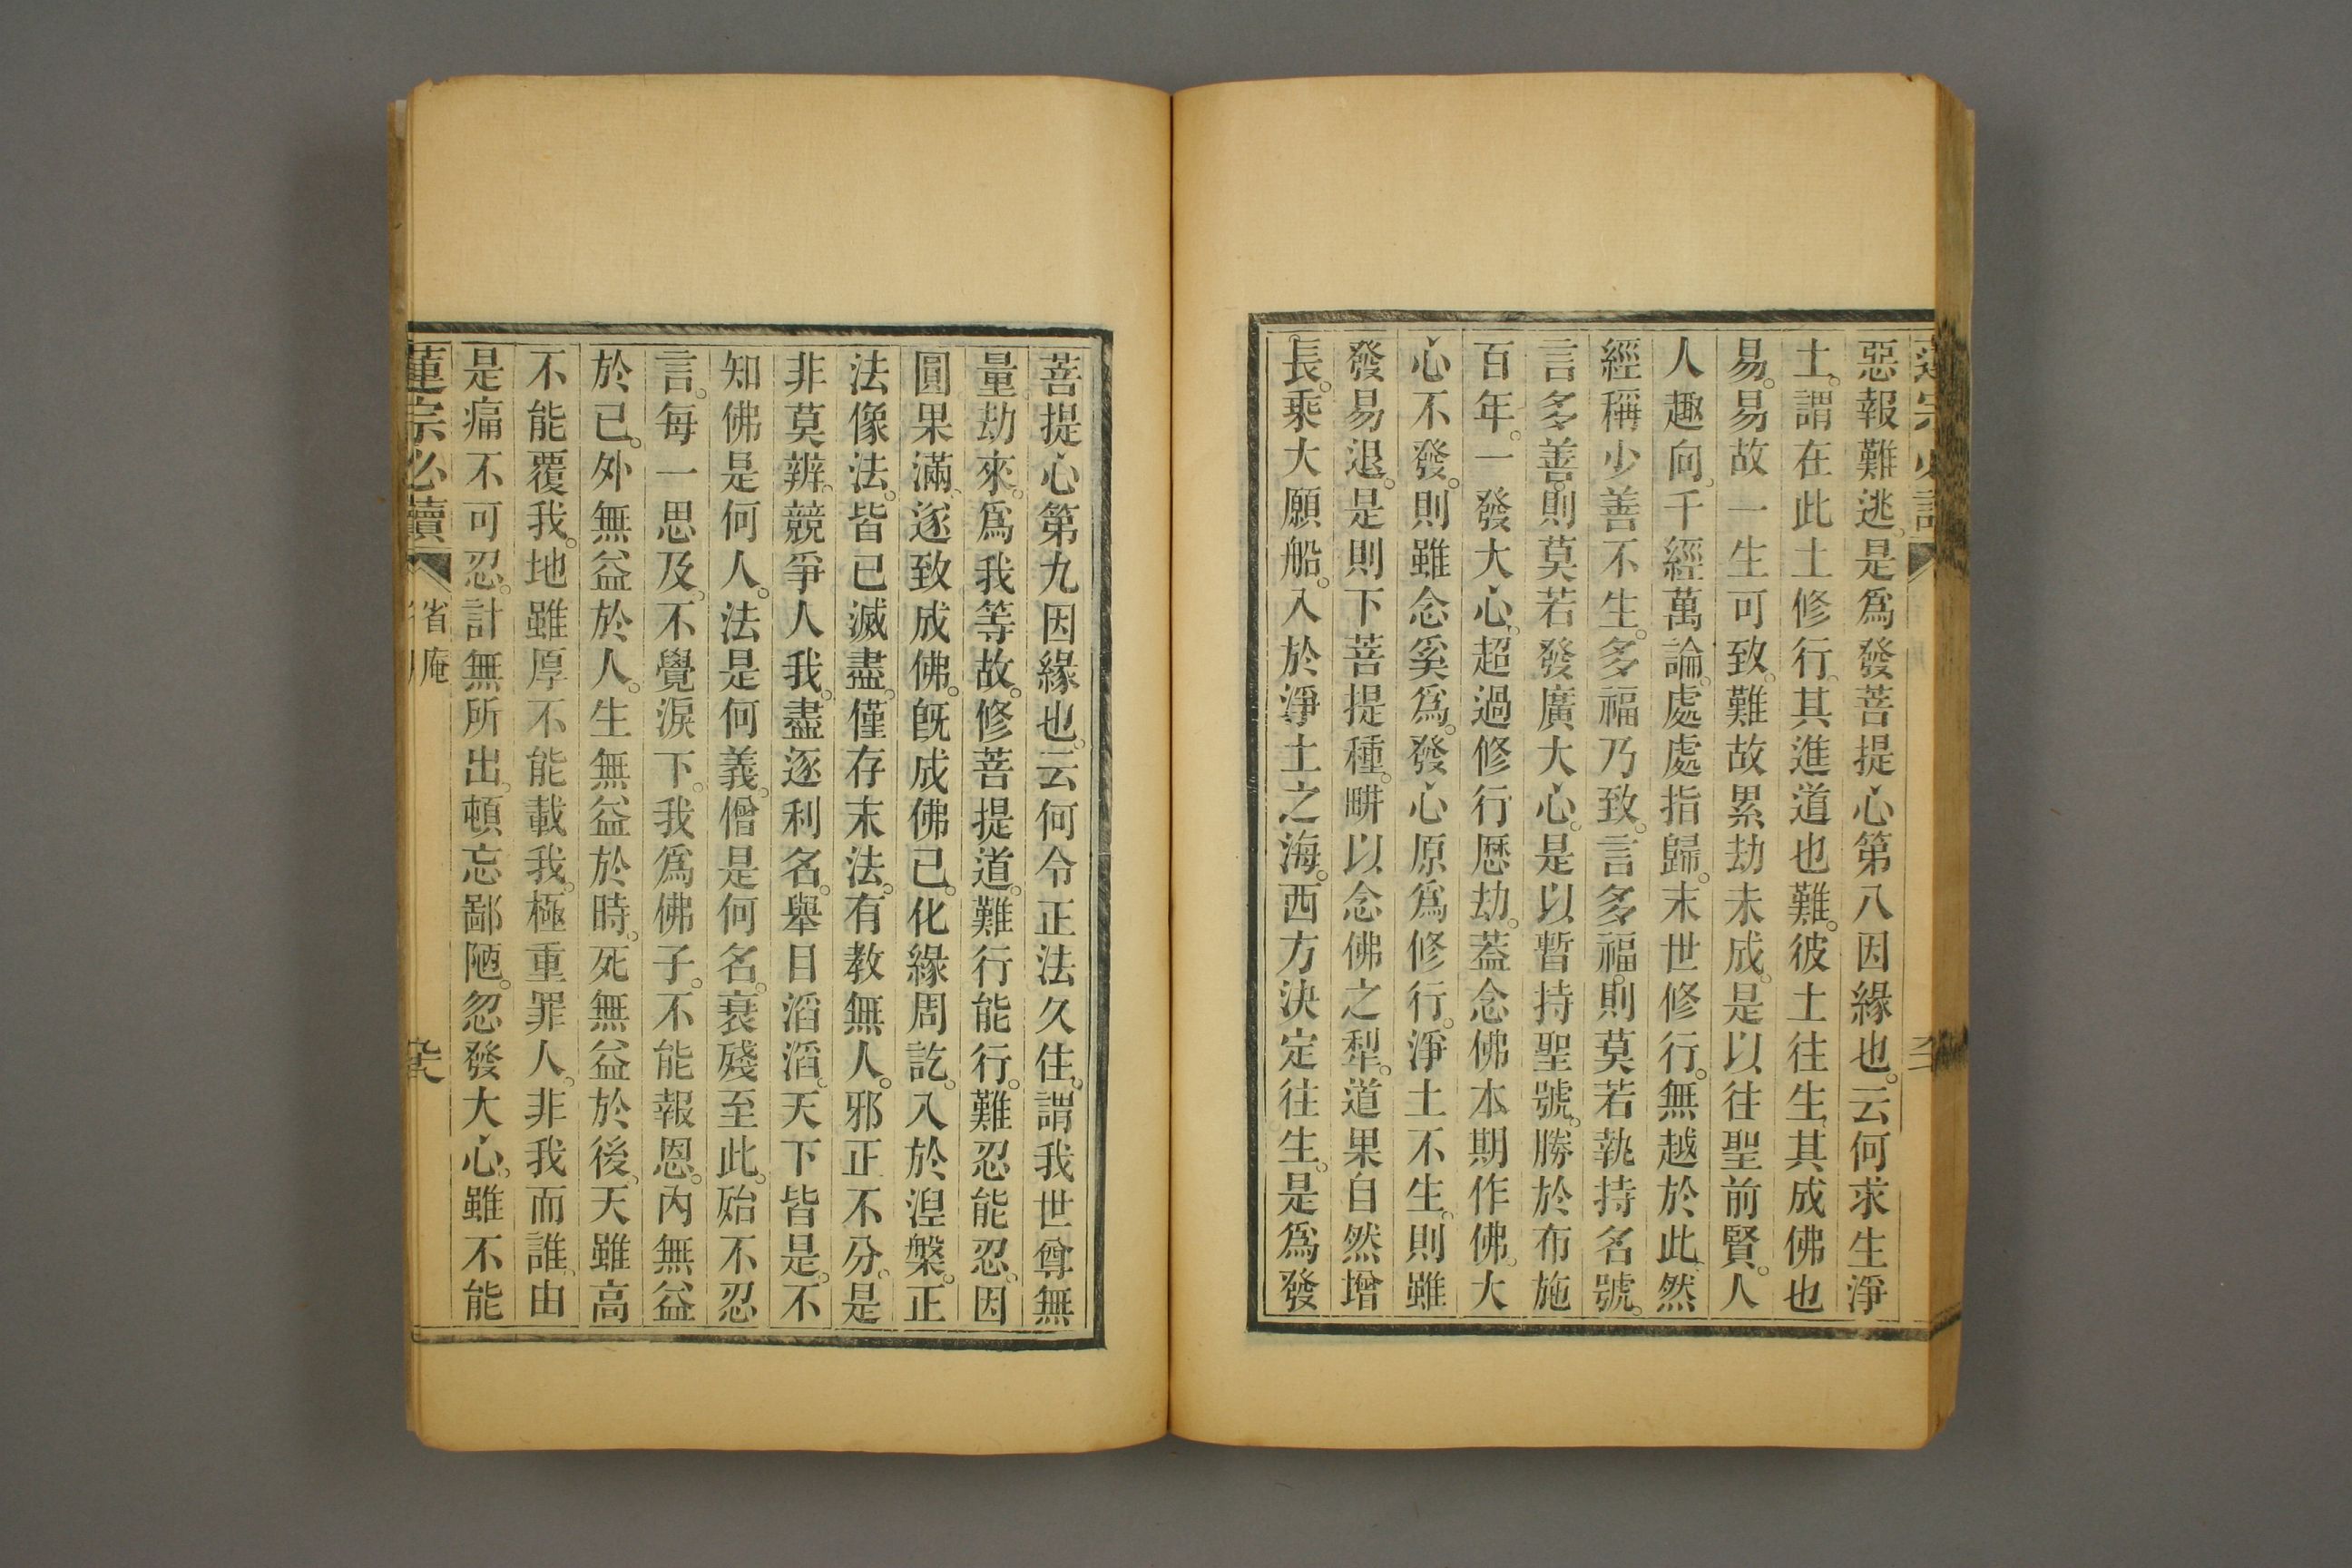 惡報難逃。是爲發菩提心第八因緣也。云何求生淨
土。謂在此土修行。其進道也難。彼土往生。其成佛也
易。易故一生可致。難故累劫未成。是以往聖前賢。人
人趣向。千經萬論。處處指歸。末世修行。無越於此。然
經稱少善不生。多福乃致。言多福。則莫若執持名號。
言多善。則莫若發廣大心。是以暫持聖號。勝於布施
百年。一發大心。超過修行歷劫。蓋念佛本期作佛。大
心不發。則雖念奚爲。發心原爲修行。淨土不生。則雖
發易退。是則下菩提種。畊以念佛之犁。道果自然增
長。乘大願船。入於淨土之海。西方決定往生。是爲發
菩提心第九因緣也。云何令正法久住。謂我世尊無
量劫來。爲我等故。修菩提道。難行能行。難忍能忍。因
圓果滿。遂致成佛。旣成佛已。化緣周訖。入於湼槃。正
法像法。皆已滅盡。僅存末法。有教無人。邪正不分。是
非莫辨。競爭人我。盡逐利名。舉目滔滔。天下皆是。不
知佛是何人。法是何義。僧是何名。衰殘至此。殆不忍
言。每一思及。不覺淚下。我爲佛子。不能報恩。內無益
於已。外無益於人。生無益於時。死無益於後。天雖高
不能覆我。地雖厚不能載我。極重罪人。非我而誰。由
是痛不可忍。計無所出。頓忘鄙陋。忽發大心。雖不能
蓮宗必讀
省庵